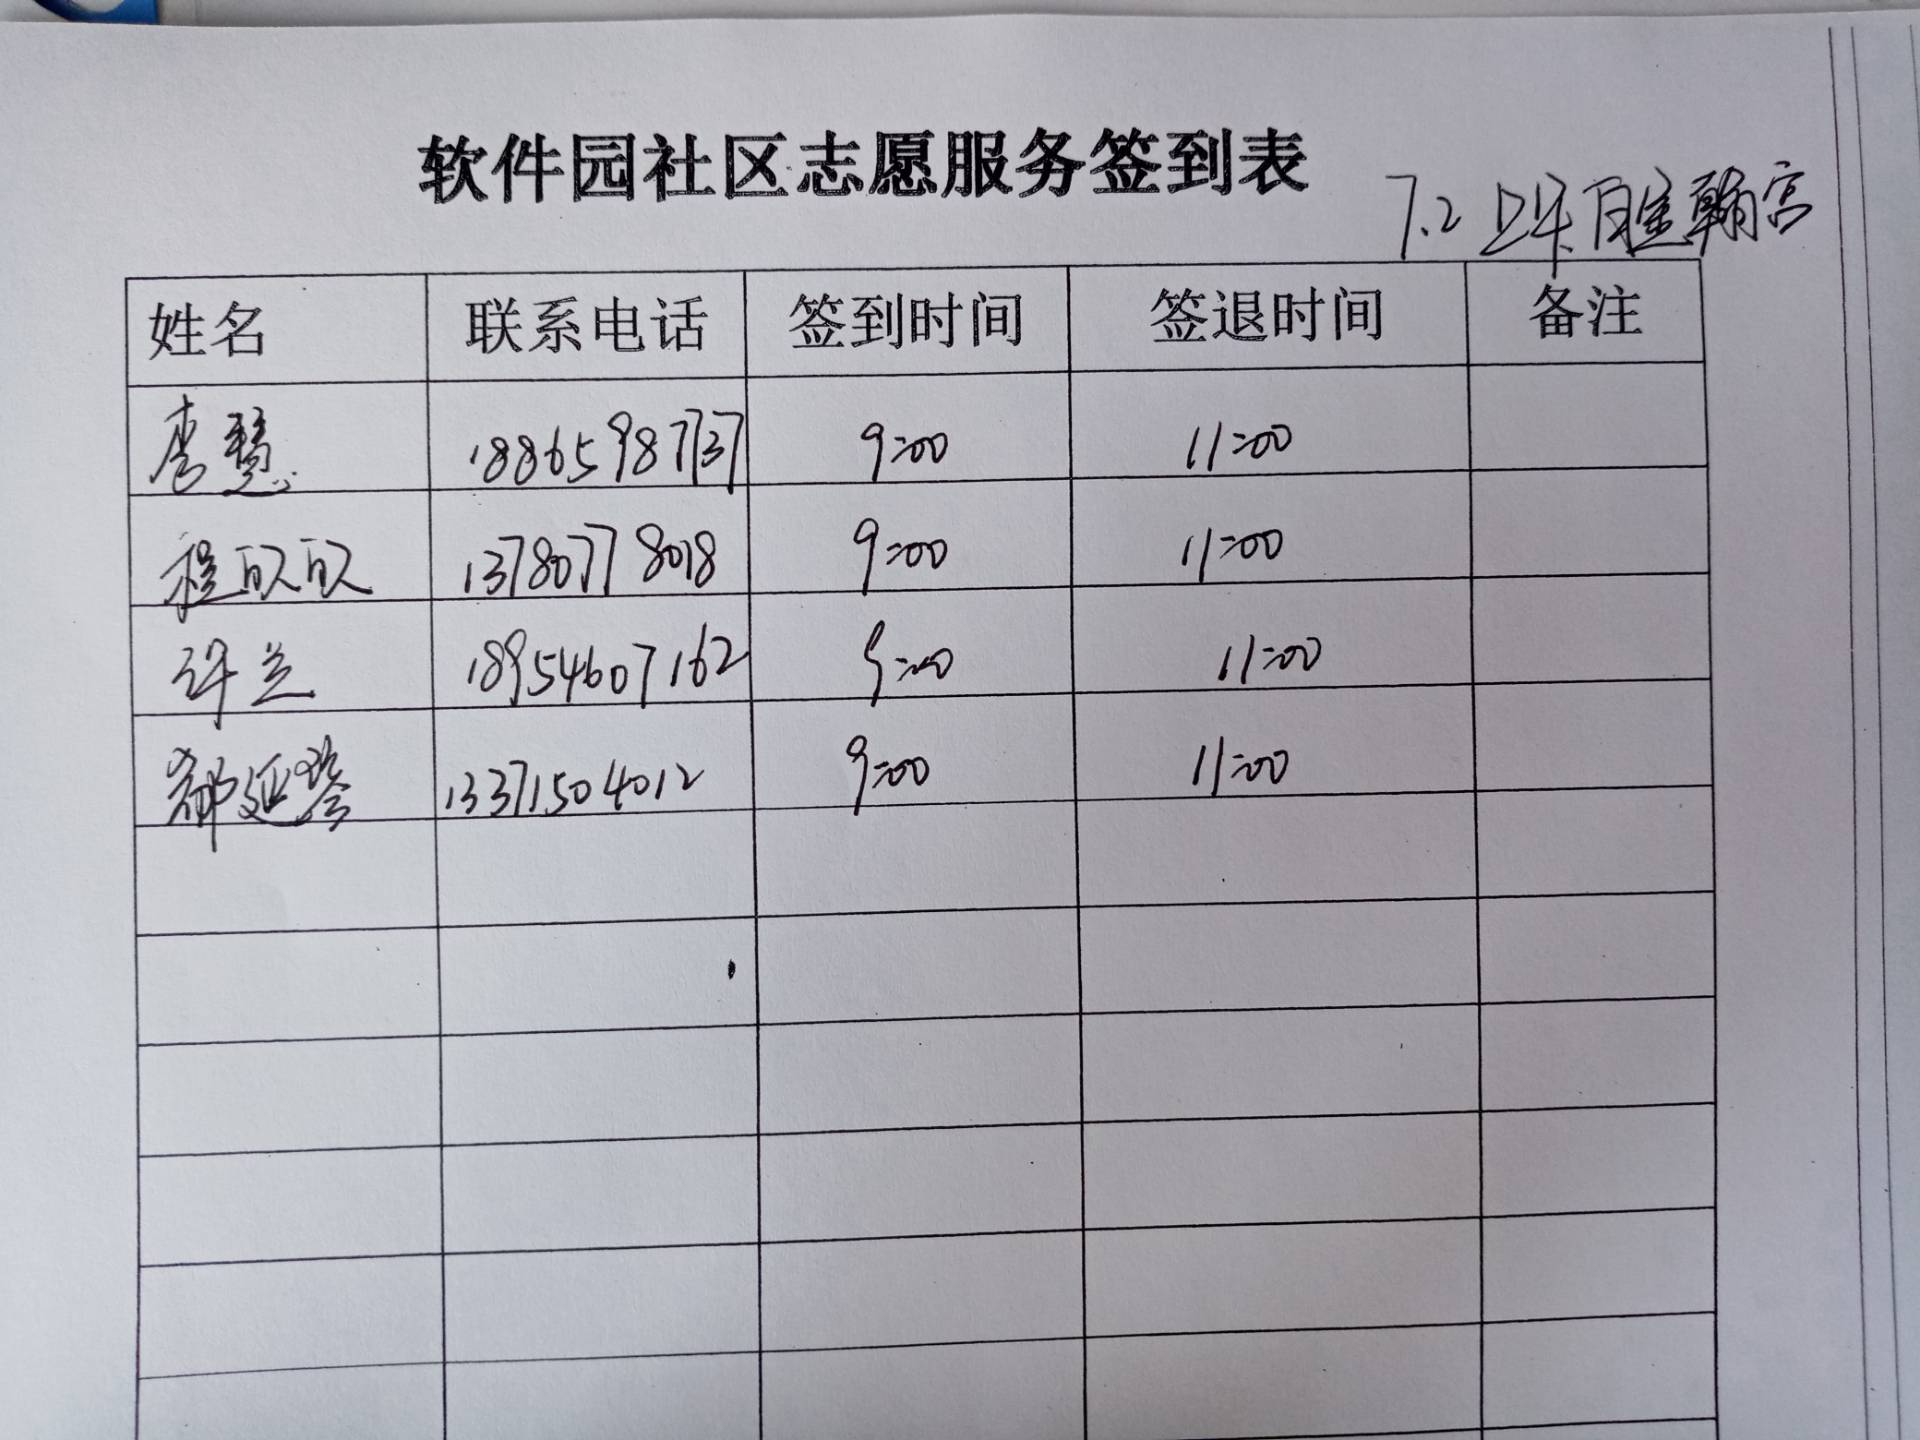 软件园社区志愿服务签到表
7.2 上午
姓名 联系电话 签到时间 签退时间 备注
李慧 18865987737 9:00 11:00
程 13780778018 9:00 11:00
许兰 18954607162 9:00 11:00
郗延 13371504012 9:00 11:00